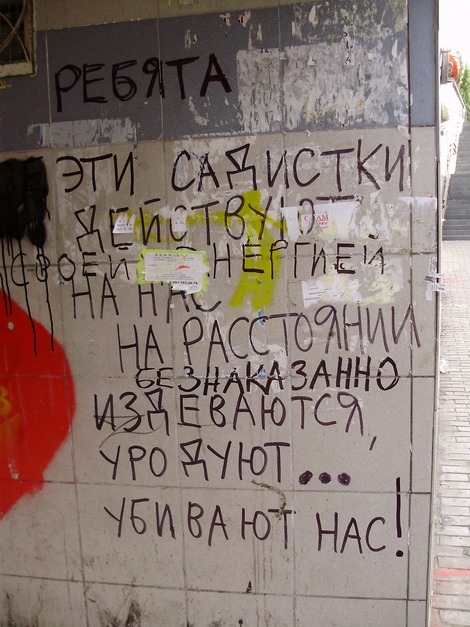 РЕБЯТА
ЭТИ САДИСТКИ
ДЕЙСТВУЮТ
СВОЕЙ ЭНЕРГИЕЙ
НА НАС
НА РАССТОЯНИИ
БЕЗНАКАЗАННО
ИЗДЕВАЮТСЯ,
УРОДУЮТ...
УБИВАЮТ НАС!